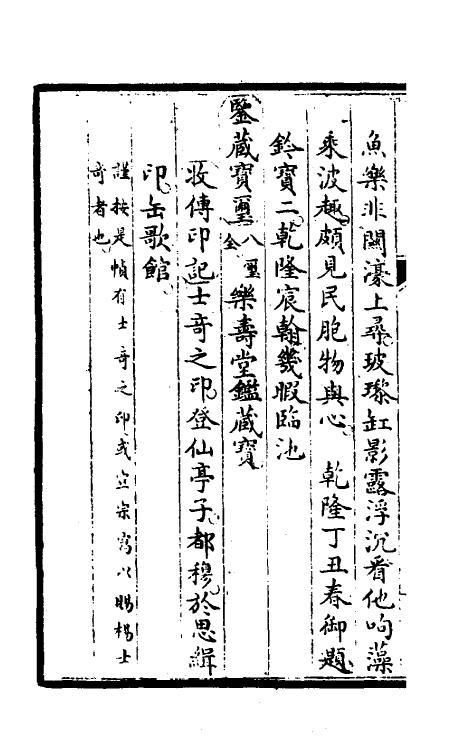 魚樂非關濠上尋玻瓈缸影露浮沉看他呴藻
乘波趣頗見民胞物與心　乾隆丁丑春御題
鈐寶二乾隆宸翰幾暇臨池
鑒藏寶璽八璽全樂壽堂鑑藏寶
收傳印記士奇之印登仙亭子都穆於思緝
印缶歌館
謹按是幀有士奇之印或宣宗寫以賜楊士
奇者也